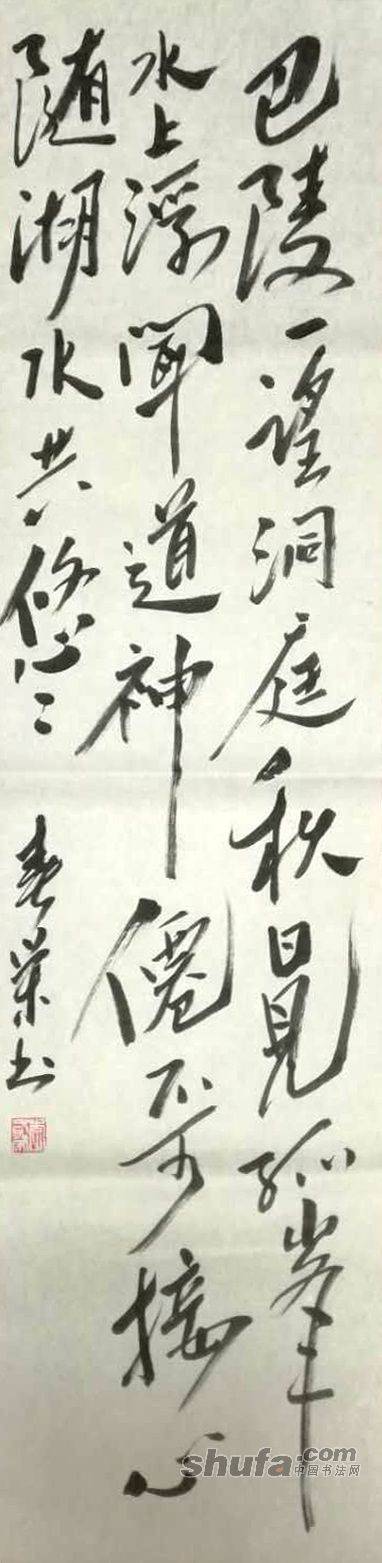 巴陵一望洞庭秋日見孤峯
水上浮聞道神僊不可接心
随湖水共悠〻
春榮书
shufa.com
中国书法网